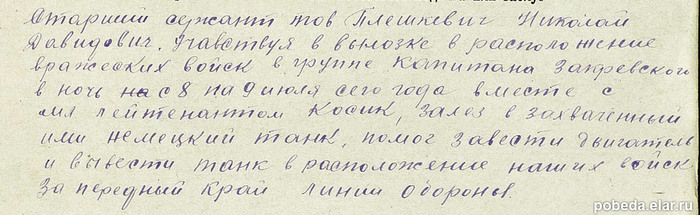 Старший сержант тов Плешкевич Николай
Давидович. Учавствуя в вылозке в расположение
вражеских войск в группе капитана Закревского
в ночь на с 8 на 9 июля сего года вместе с
мл лейтенантом Косик, залез в захваченный
ими немецкий танк, помог завести двигатель
и вывести танк в расположение наших войск
за передний край линии обороны.
pobeda.elar.ru